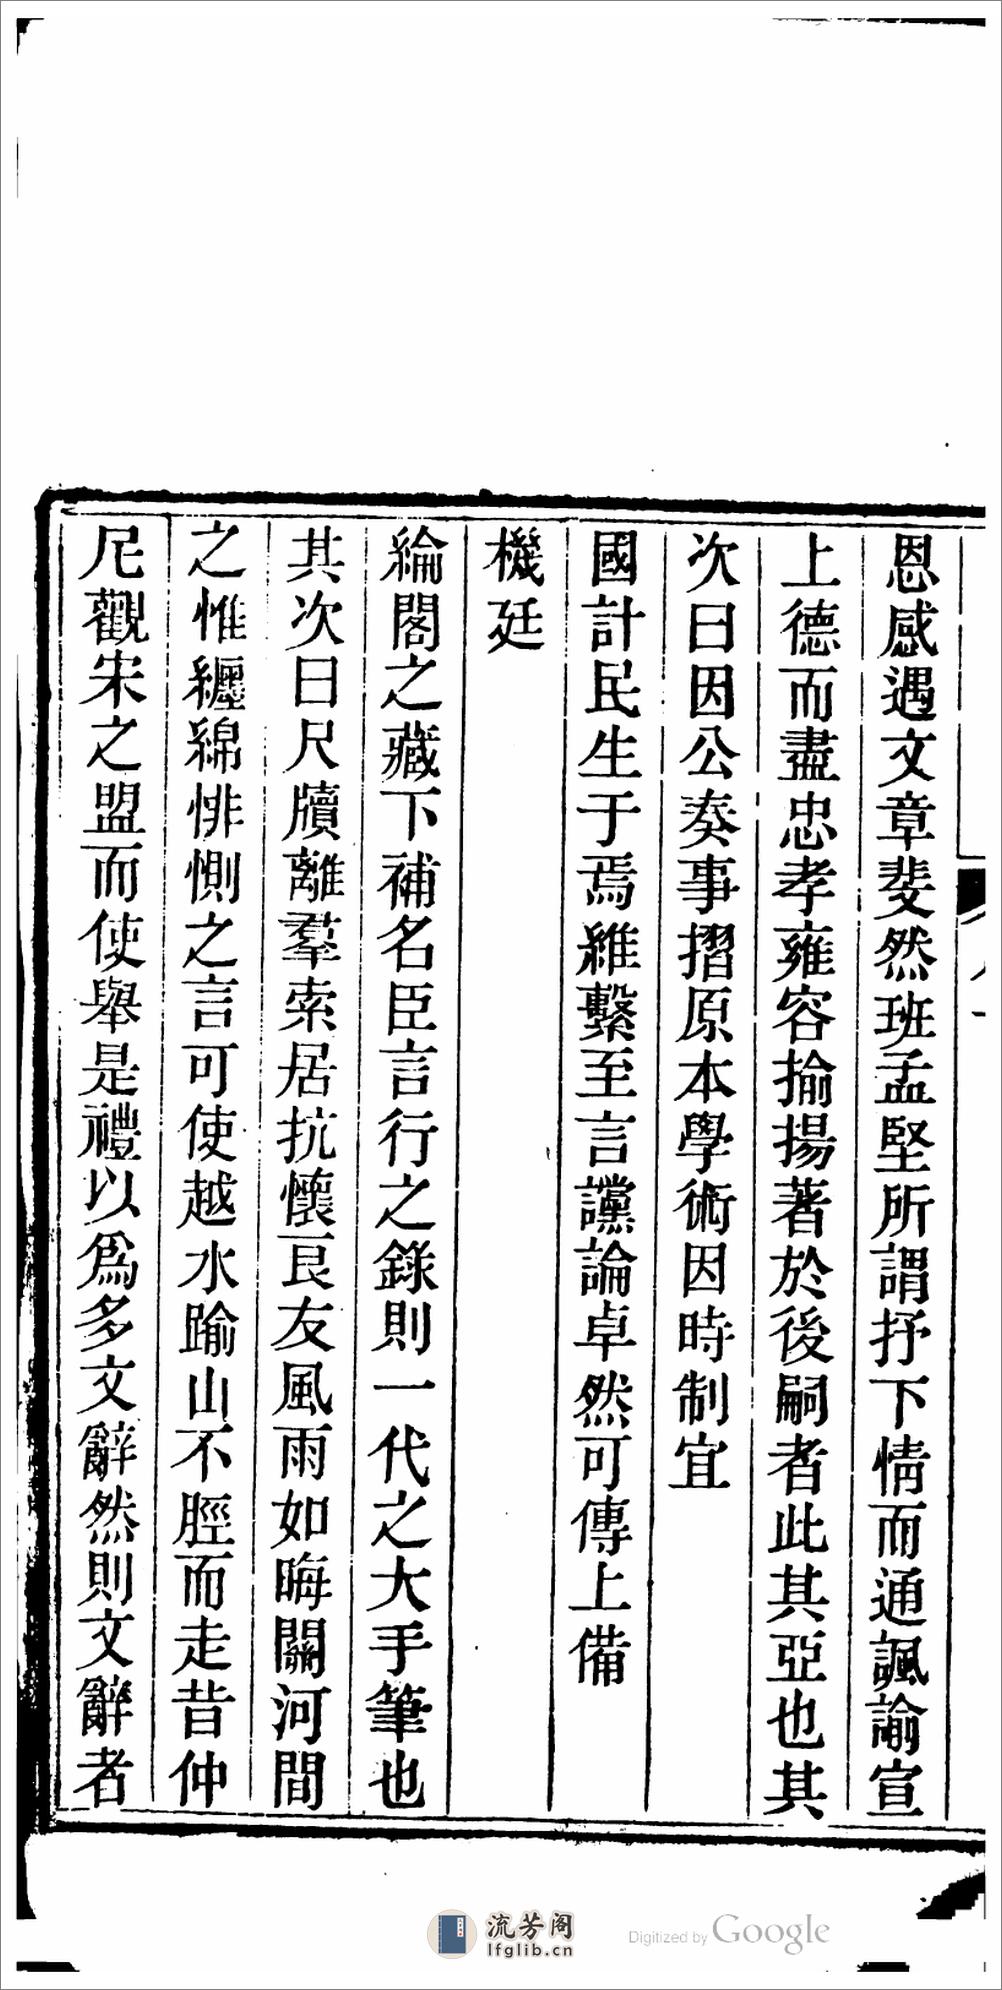 恩感遇文章斐然班孟堅所謂抒下情而通諷諭宣
上德而盡忠孝雍容揄揚著於後嗣者此其亞也其
次曰因公奏事摺原本學術因時制宜
國計民生于焉維繫至言讜論卓然可傳上備
機廷
綸閣之藏下補名臣言行之錄則一代之大手筆也
其次曰尺牘離羣索居抗懷良友風雨如晦關河間
之惟纏綿悱惻之言可使越水踰山不脛而走昔仲
尼觀宋之盟而使舉是禮以爲多文辭然則文辭者
流芳阁
lfglib.cn
Digitized by Google